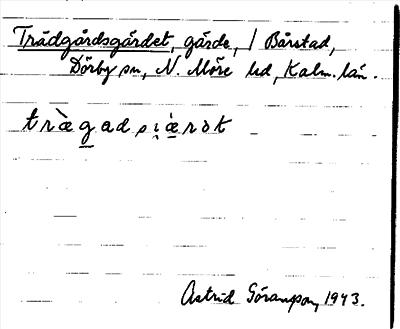 Trädgårdsgärdet, gärde, / Bårstad,
Dörby sn, N. Möre hd, Kalm. län.
træ̀gadsi̯æ̀rət
Astrid Göransson, 1943.